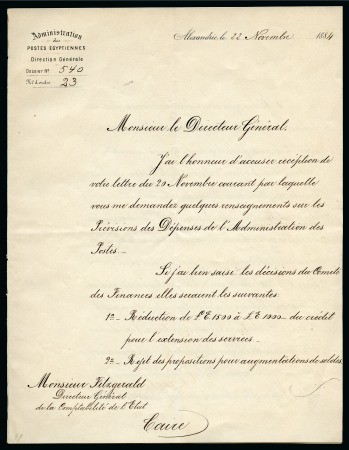 Administration
des
POSTES EGYPTIENNES
Direction Générale
Dossier Nº 540
Nº d'ordre 23
Alexandrie, le 22 Novembre 1884
Monsieur le Directeur Général,
J'ai l'honneur d'accuser réception de
votre lettre du 20 Novembre courant par laquelle
vous me demandez quelques renseignements sur les
Prévisions des Dépenses de l'Administration des
Postes._
Si j'ai bien saisi les décisions du Comité
des Finances elles seraient les suivantes
1º_ Réduction de £E 1500 à £E 1000_ du crédit
pour l'extension des services._
2º_ Rejet des propositions pour augmentations de soldes
Monsieur Fitzgerald
Directeur Général
de la Comptabilité de l'Etat
Caire